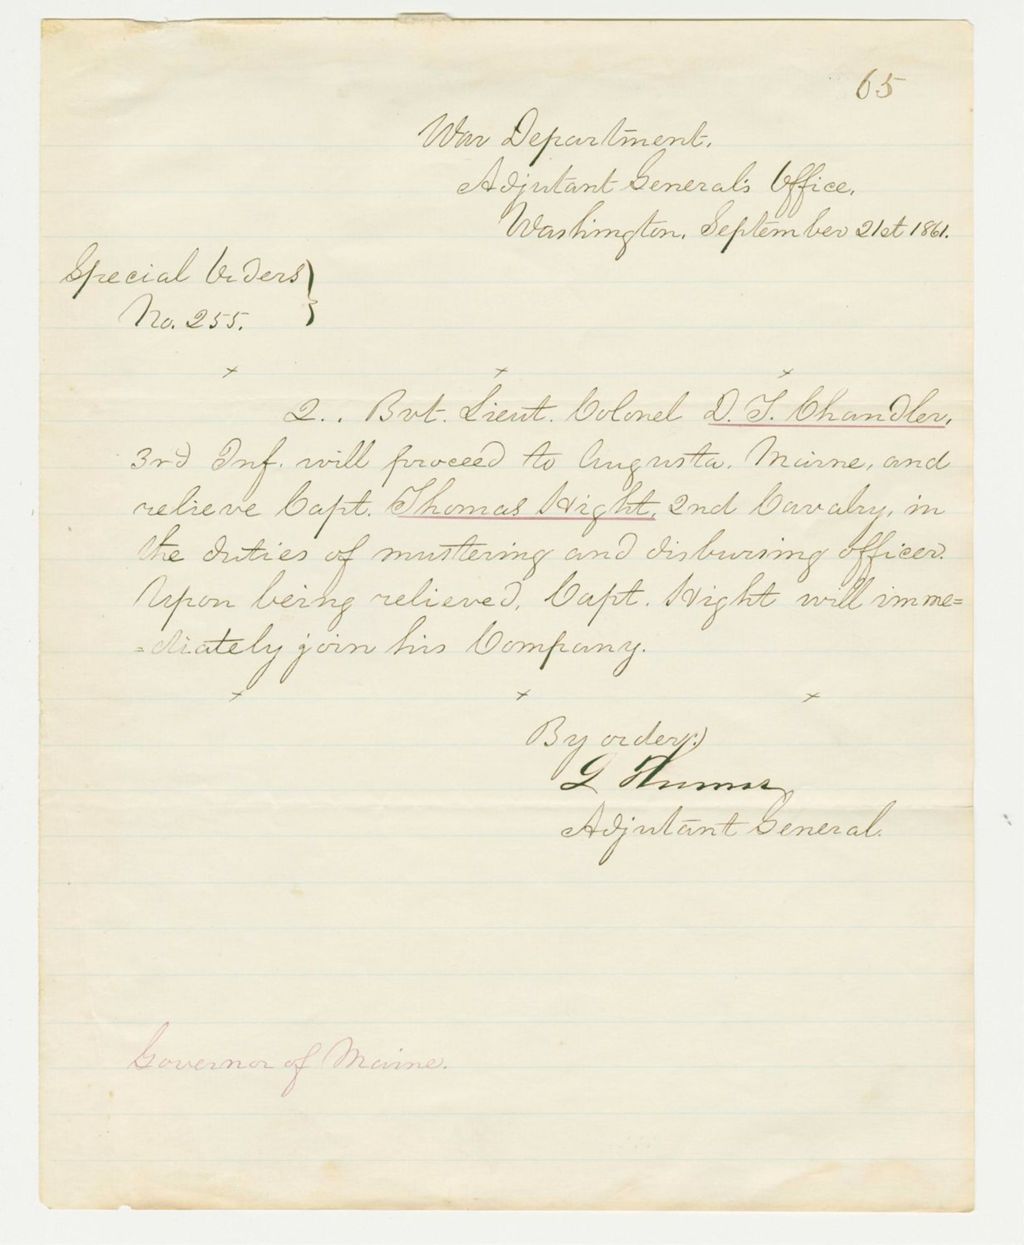 65
War Department,
Adjutant General's Office,
Washington, September 21st 1861.
Special Orders }
No. 255. }
× × ×
2.. Bvt. Lieut. Colonel D. T. Chandler,
3rd Inf. will proceed to Augusta, Maine, and
relieve Capt. Thomas Hight, 2nd Cavalry, in
the duties of mustering and disbursing officer.
Upon being relieved, Capt. Hight will imme=
=diately join his Company.
× × ×
By order:
L Thomas
Adjutant General.
Governor of Maine.